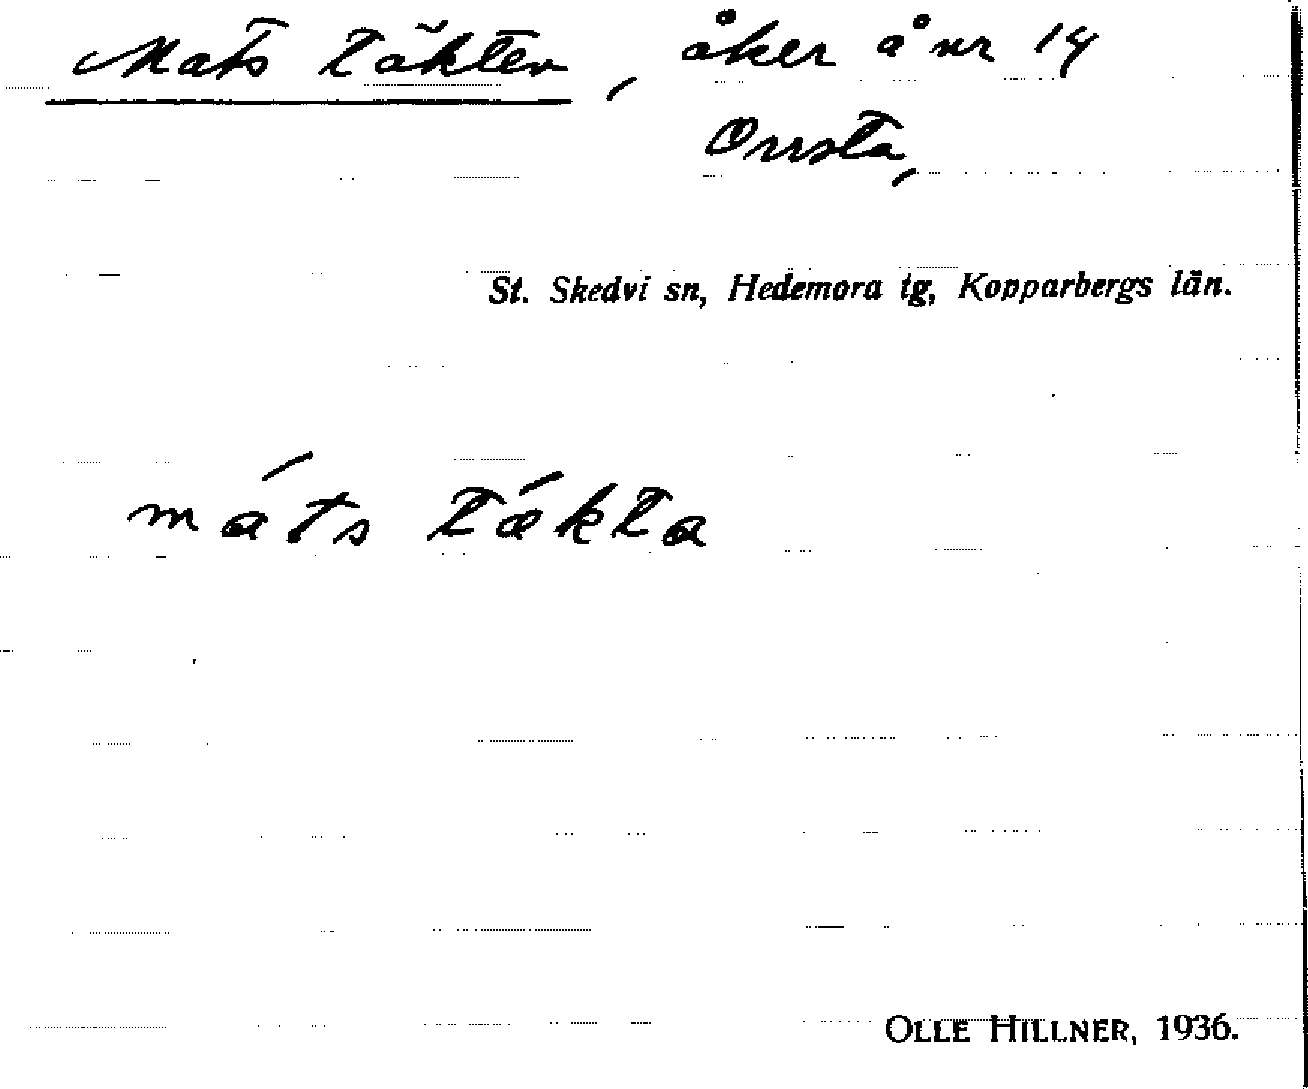 Mats Täkten, åker å nr 14
Orrsta,
St. Skedvi sn, Hedemora tg, Kopparbergs län.
máts tǽkta
OLLE HILLNER, 1936.